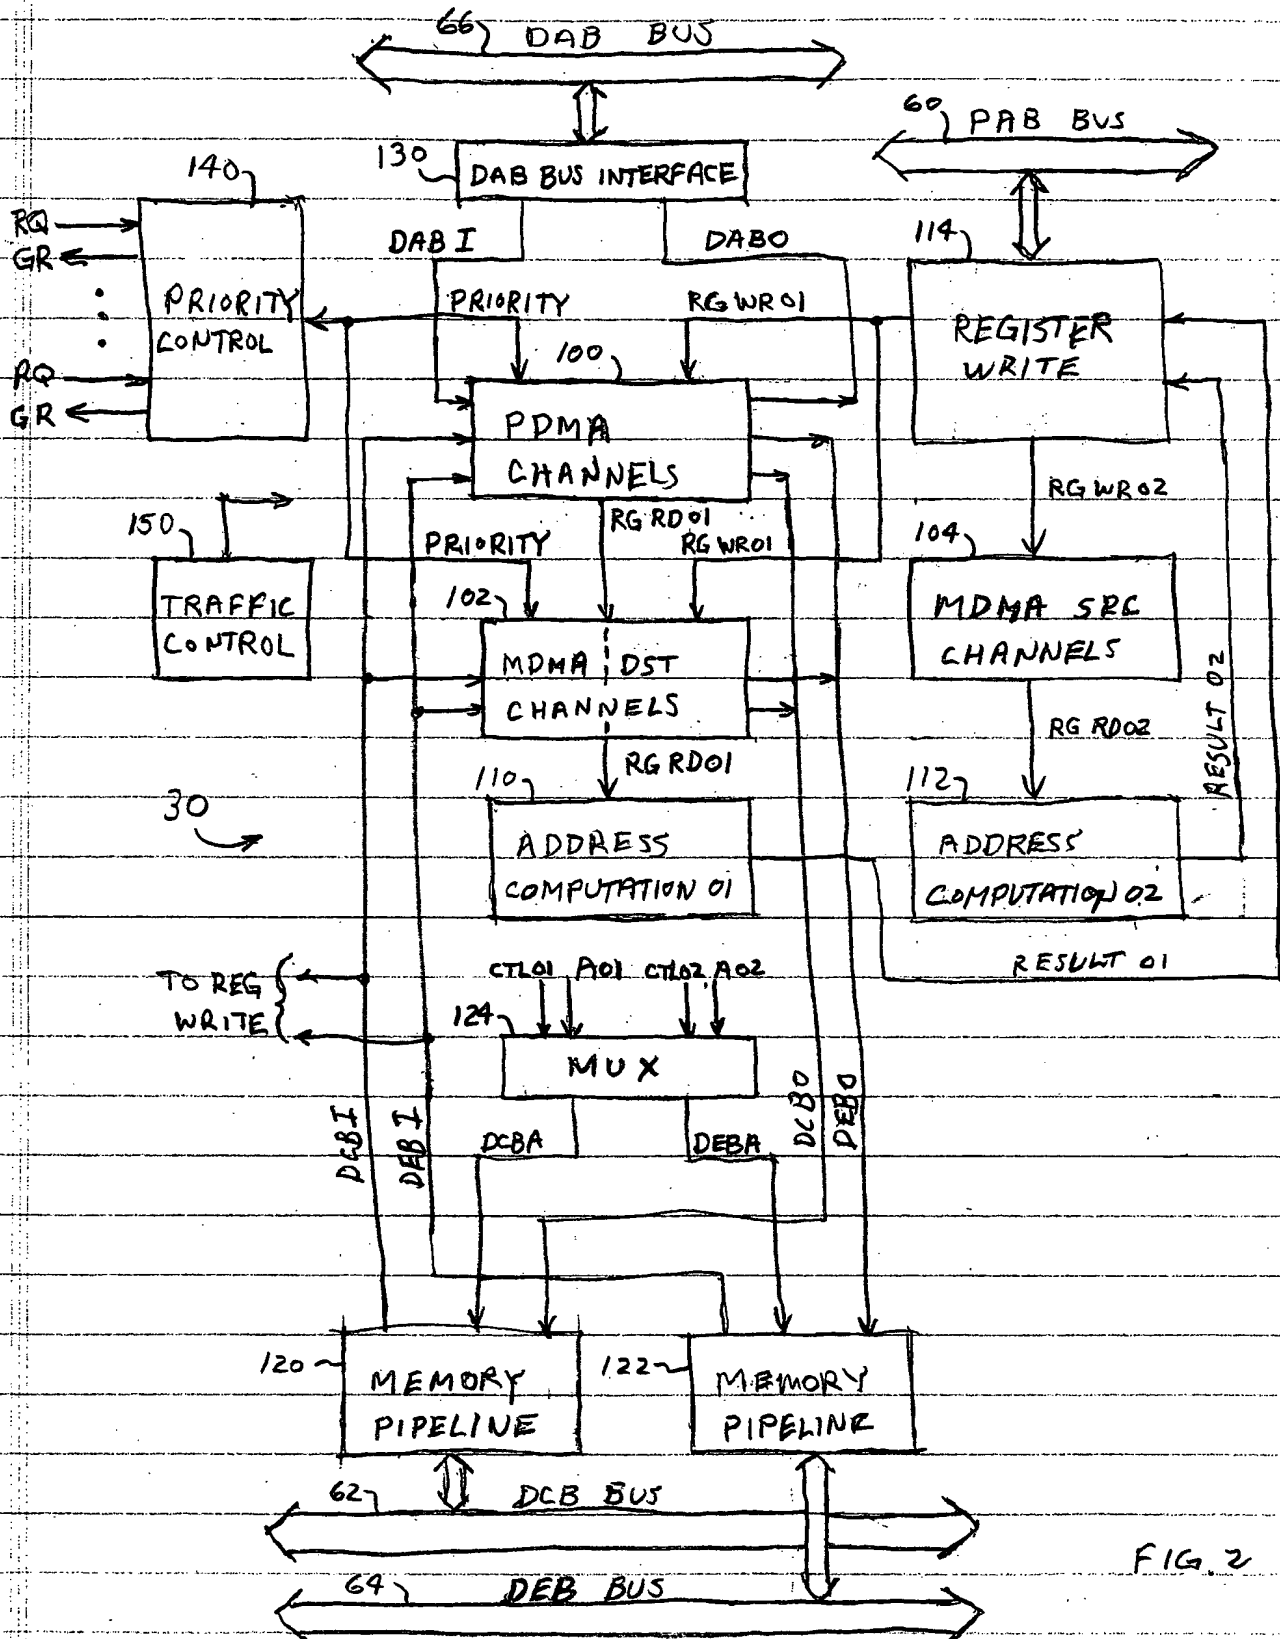 66 DAB BUS
60 PAB BUS
130
DAB BUS INTERFACE
140
RQ
GR
DAB I
DABO
114
PRIORITY
CONTROL
PRIORITY
RGWR01
REGISTER
WRITE
100
RQ
GR
PDMA
CHANNELS
RGWR02
150
RGRD01
PRIORITY
RGWR01
104
102
TRAFFIC
CONTROL
MDMA SRC
CHANNELS
MDMA DST
CHANNELS
RESULT 02
RGRD02
RGRD01
110
112
30
ADDRESS
COMPUTATION 01
ADDRESS
COMPUTATION 02
RESULT 01
TO REG
WRITE
CTL01 A01 CTL02 A02
124
MUX
DCBI
DEBI
DCBA
DEBA
DCBO
DEBO
120
MEMORY
PIPELINE
122
MEMORY
PIPELINE
62 DCB BUS
FIG. 2
64 DEB BUS